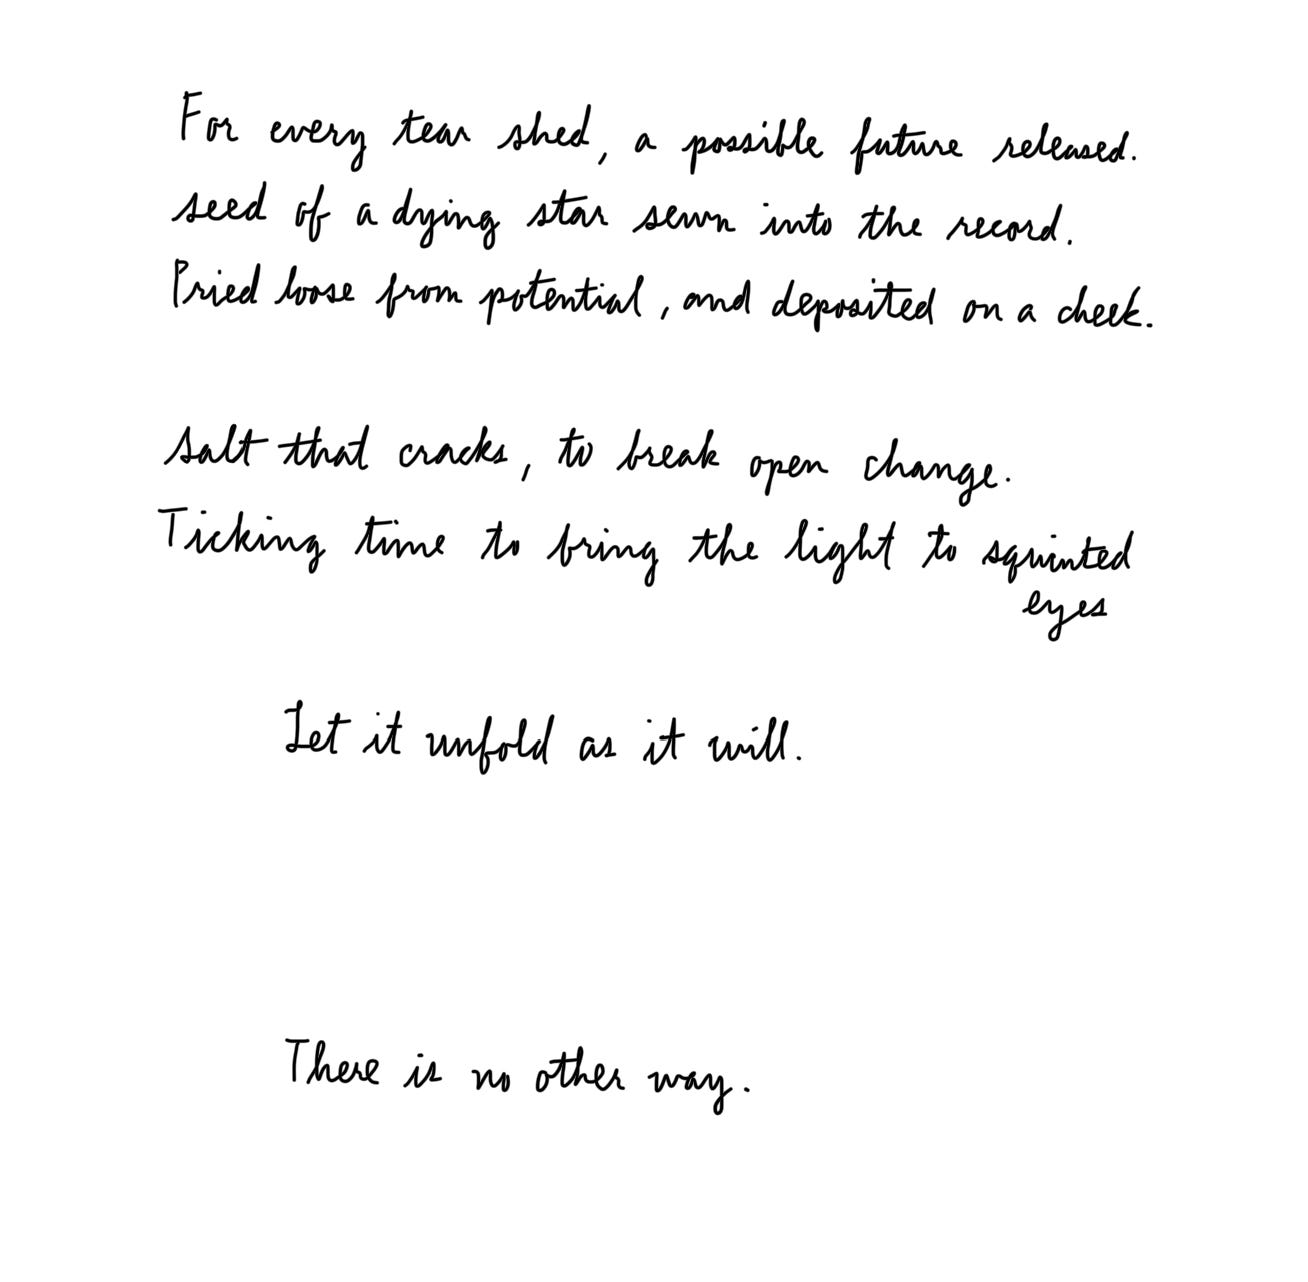 For every tear shed, a possible future released.
seed of a dying star sewn into the record.
Pried loose from potential, and deposited on a cheek.
salt that cracks, to break open change.
Ticking time to bring the light to squinted
eyes
Let it unfold as it will.
There is no other way.